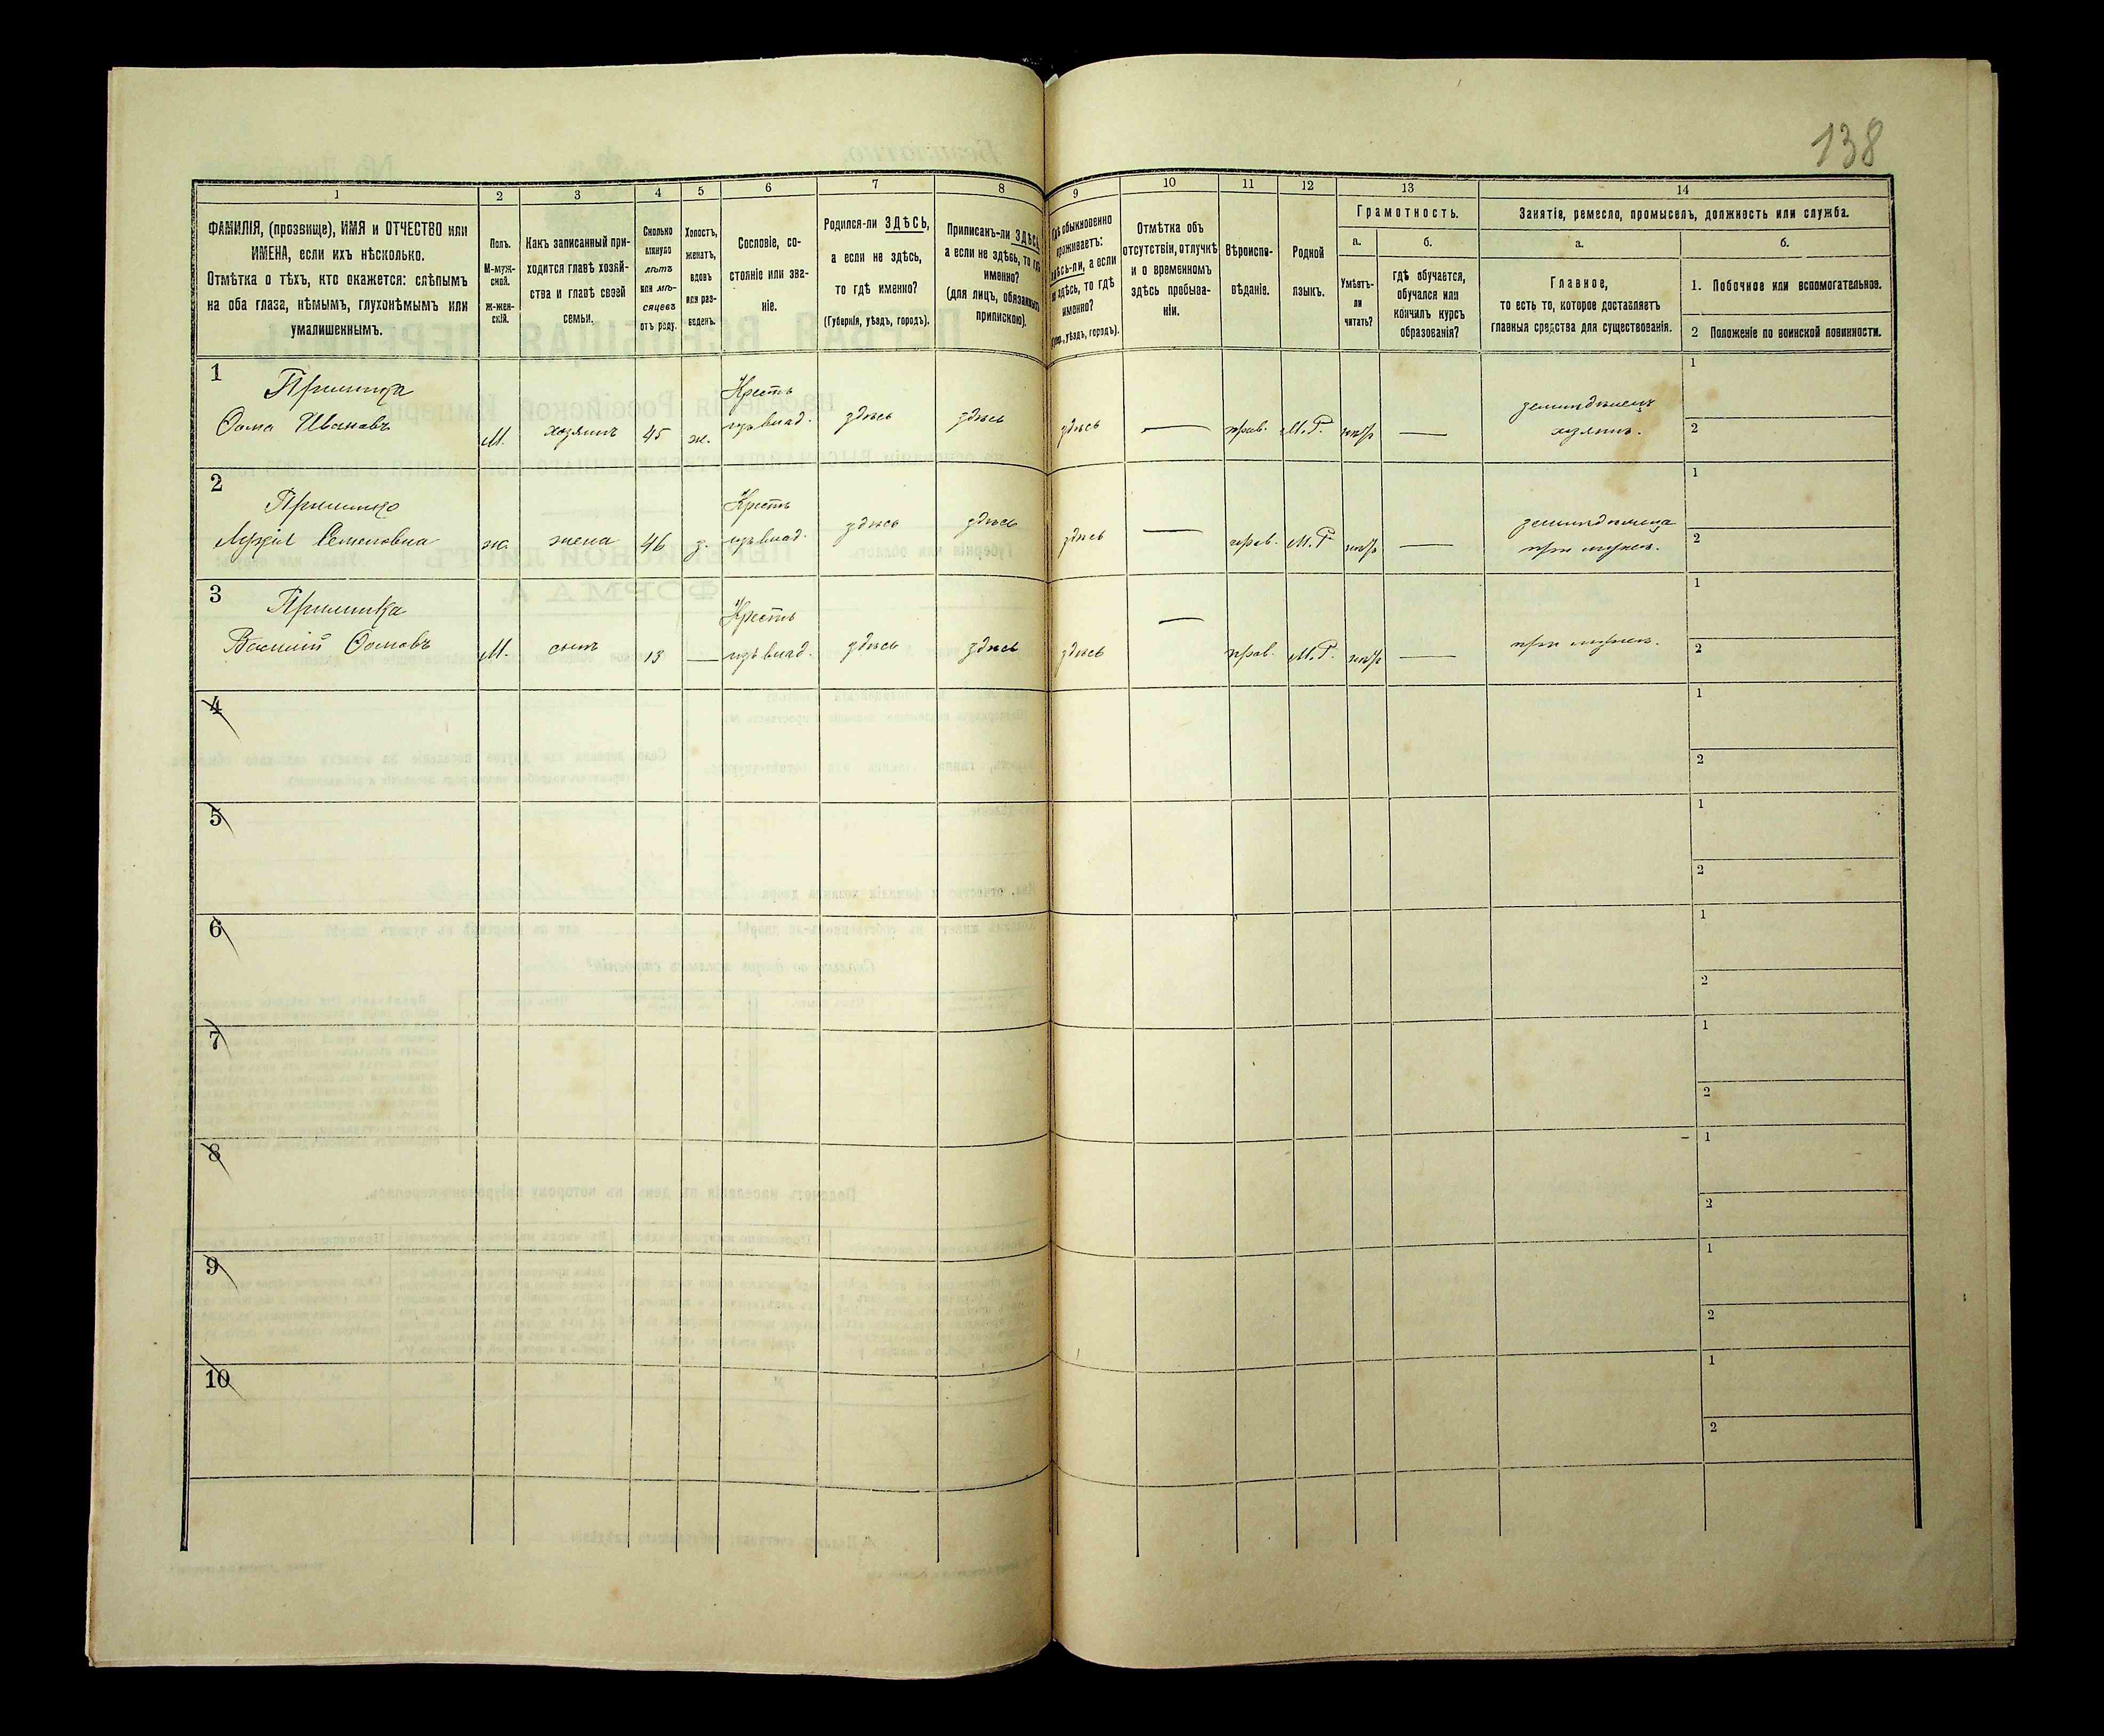 138
1
2
3
4
5
6
7
8
9
10
11
12
13
14
ФАМИЛІЯ, (прозвище), ИМЯ и ОТЧЕСТВО или
ИМЕНА, если ихъ нѣсколько.
Отмѣтка о тѣхъ, кто окажется: слѣпымъ
на оба глаза, нѣмымъ, глухонѣмымъ или
умалишеннымъ.
Полъ.
М-муж-
ской.
Ж-жен-
скій.
Какъ записанный при-
ходится главѣ хозяй-
ства и главѣ своей
семьи.
Сколько
минуло
лѣтъ
или мѣ-
сяцевъ
отъ роду.
Холостъ,
женатъ,
вдовъ
или раз-
веденъ.
Сословіе, со-
стояніе или зва-
ніе.
Родился-ли ЗДѢСЬ,
а если не здѣсь,
то гдѣ именно?
(Губернія, уѣздъ, городъ).
Приписанъ-ли ЗДѢСЬ,
а если не здѣсь, то гдѣ
именно?
(для лицъ, обязанныхъ
припискою).
Гдѣ обыкновенно
проживаетъ:
здѣсь-ли, а если
не здѣсь, то гдѣ
именно?
(Губ., уѣздъ, городъ).
Отмѣтка объ
отсутствіи, отлучкѣ
и о временномъ
здѣсь пребыва-
ніи.
Вѣроиспо-
вѣданіе.
Родной
языкъ.
Грамотность.
а.
Умѣетъ-
ли
читать?
б.
гдѣ обучается,
обучался или
кончилъ курсъ
образованія?
Занятіе, ремесло, промыселъ, должность или служба.
а.
Главное,
то есть то, которое доставляетъ
главныя средства для существованія.
б.
1. Побочное или вспомогательное.
2 Положеніе по воинской повинности.
1
Ѳома Ивановъ
М.
хозяинъ
45
ж.
Крестъ
изъ влад.
здѣсь
здѣсь
здѣсь
—
прав.
М.Р.
—
земледѣлецъ
хозяинъ.
1
2
2
Семеновна
ж.
жена
46
з.
Крестъ
изъ влад.
здѣсь
здѣсь
здѣсь
—
прав.
М.Р.
—
при мужѣ.
1
2
3
Василій Ѳомовъ
М.
сынъ
13
—
Крестъ
изъ влад.
здѣсь
здѣсь
здѣсь
—
прав.
М.Р.
—
1
2
4
1
2
5
1
2
6
1
2
7
1
2
8
1
2
9
1
2
10
1
2